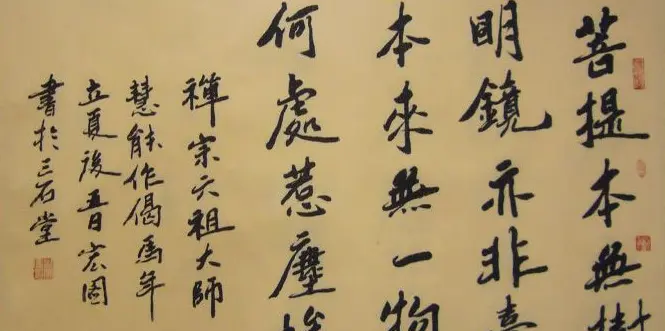 菩提本無樹
明鏡亦非
本來無一物
何處惹塵
禪宗六祖大師
慧能作偈馬年
立夏後日宏图
書於三石堂